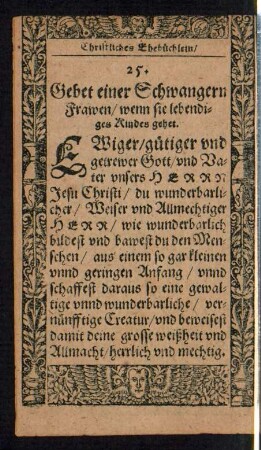 Christliches Ehebüchlein/
25.
Gebet einer Schwangern
Frawen/ wenn sie lebendi-
ges Kindes gehet.
EWiger/gütiger vnd
getrewer Gott/ vnd Va-
ter vnsers HERRN
Jesu Christi/ du wunderbarli-
cher/ Weiser vnd Allmechtiger
HERR/ wie wunderbarlich
bildest vnd bawest du den Men-
schen/ aus einem so gar kleinen
vnnd geringen Anfang/ vnnd
schaffest daraus so eine gewal-
tige vnnd wunderbarliche/ ver-
nünfftige Creatur/ vnd beweisest
damit deine grosse weißheit vnd
Allmacht/ herrlich vnd mechtig.